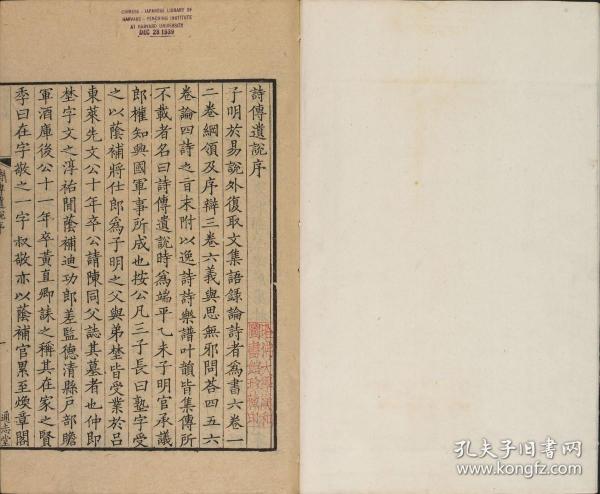 CHINESE - JAPANESE LIBRARY OF
HARVARD - YENCHING INSTITUTE
AT HARVARD UNIVERSITY
DEC 28 1939
詩傳遺說序
子明於易說外復取文集語錄論詩者爲書六卷一
二卷綱領及序辯三卷六義與思無邪問荅四五六
卷論四詩之㫖末附以逸詩詩樂譜叶韻皆集傳所
不載者名曰詩傳遺說時爲端平乙未子明官承議
郎權知興國軍事所成也按公凡三子長曰塾字受
之以蔭補將仕郎爲子明之父與弟埜皆受業於呂
東萊先文公十年卒公請陳同父誌其墓者也仲即
埜字文之淳祐間蔭補迪功郎差監德清縣戶部贍
軍酒庫後公十一年卒黃直卿誄之稱其在家之賢
季曰在字敬之一字叔敬亦以蔭補官累至煥章閣
詩傳遺說序
一
通志堂
哈佛大學漢和
圖書館珍藏印
孔夫子旧书网
kongfz.com